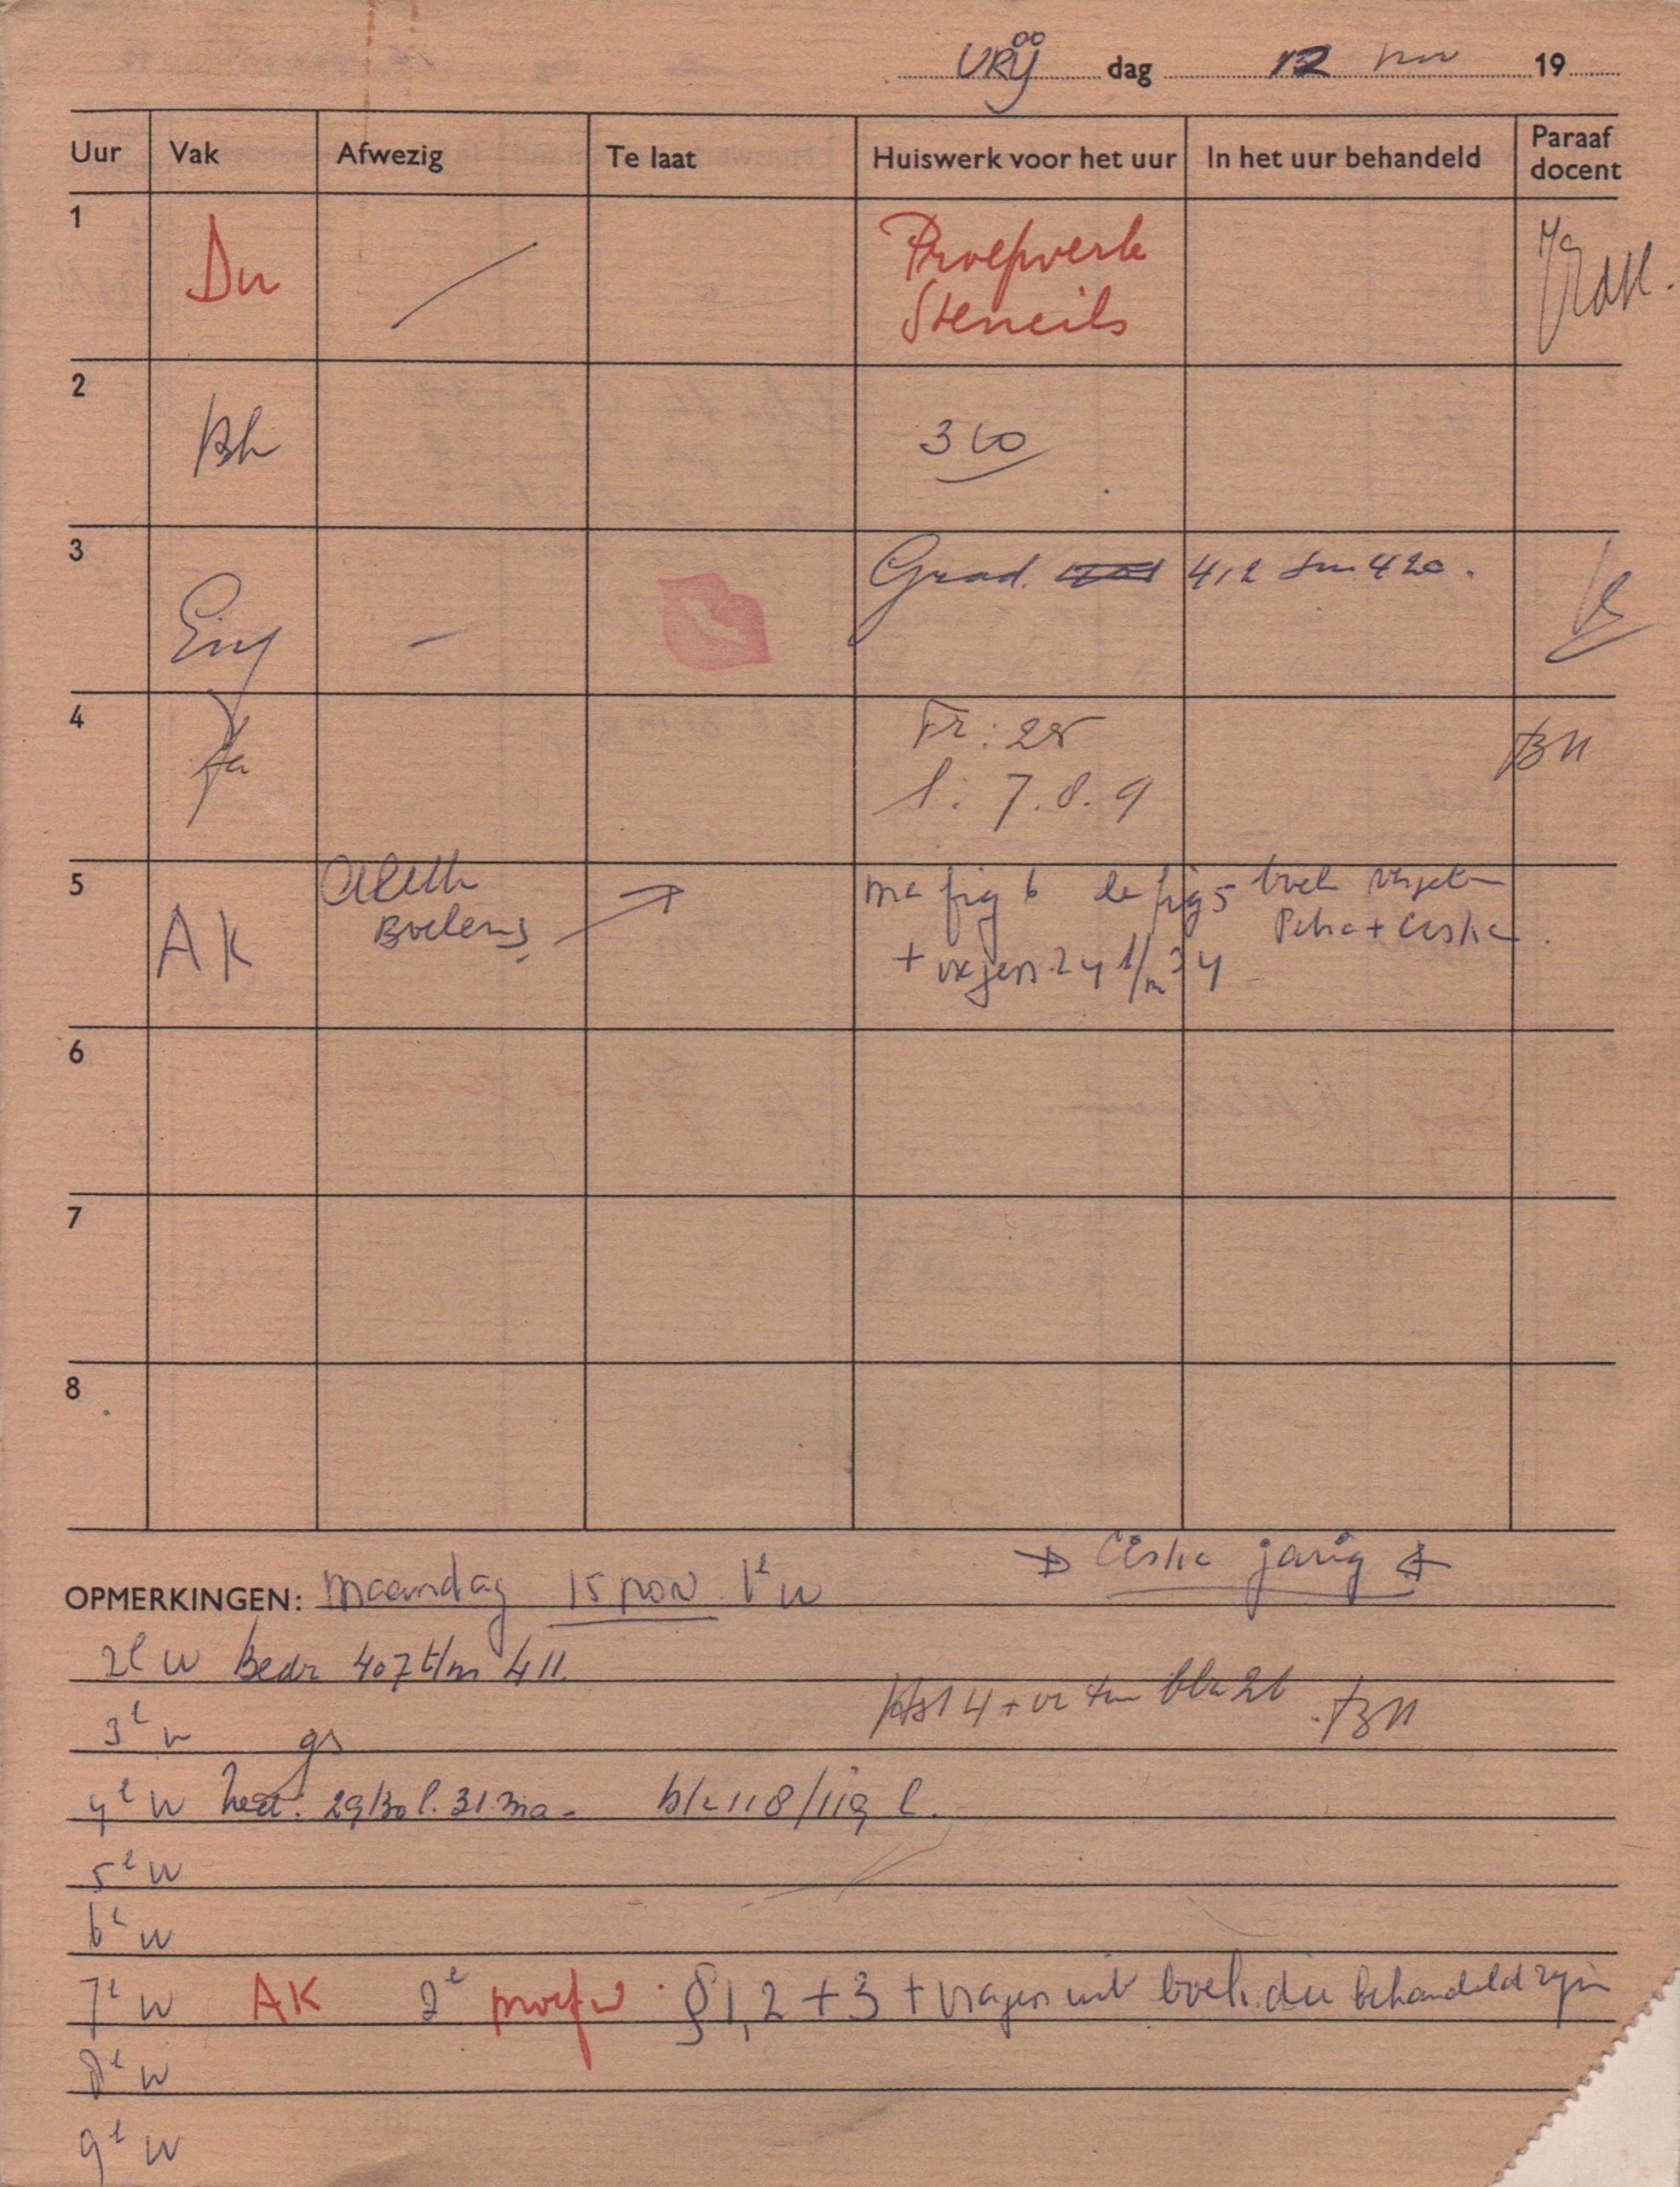 VRIJ dag 12 nov 19
Uur Vak Afwezig Te laat Huiswerk voor het uur In het uur behandeld Paraaf docent
1 Du Proefwerk
Stencils
2 Bh 3
3 Eng - Grad. 412 420.
4 Fa Fr: 28
l: 7.8.9
5 AK Aleth
Boelens ma fig 6 le fig 5 boek vergeten
Petra + Ciska.
+ vragen 24 t/m 34
6
7
8
→ Ciska jarig ←
OPMERKINGEN: maandag 15 nov 1e u
2e u Bedr 407 t/m 411.
Hst 4 + blz 26 BN
3e u gs
4e u 29/30 l. 31 ma. blz 118/119 l.
5e u
6e u
7e u AK 2e proefw. § 1, 2 + 3 + vragen uit boek die behandeld zijn
8e u
9e u